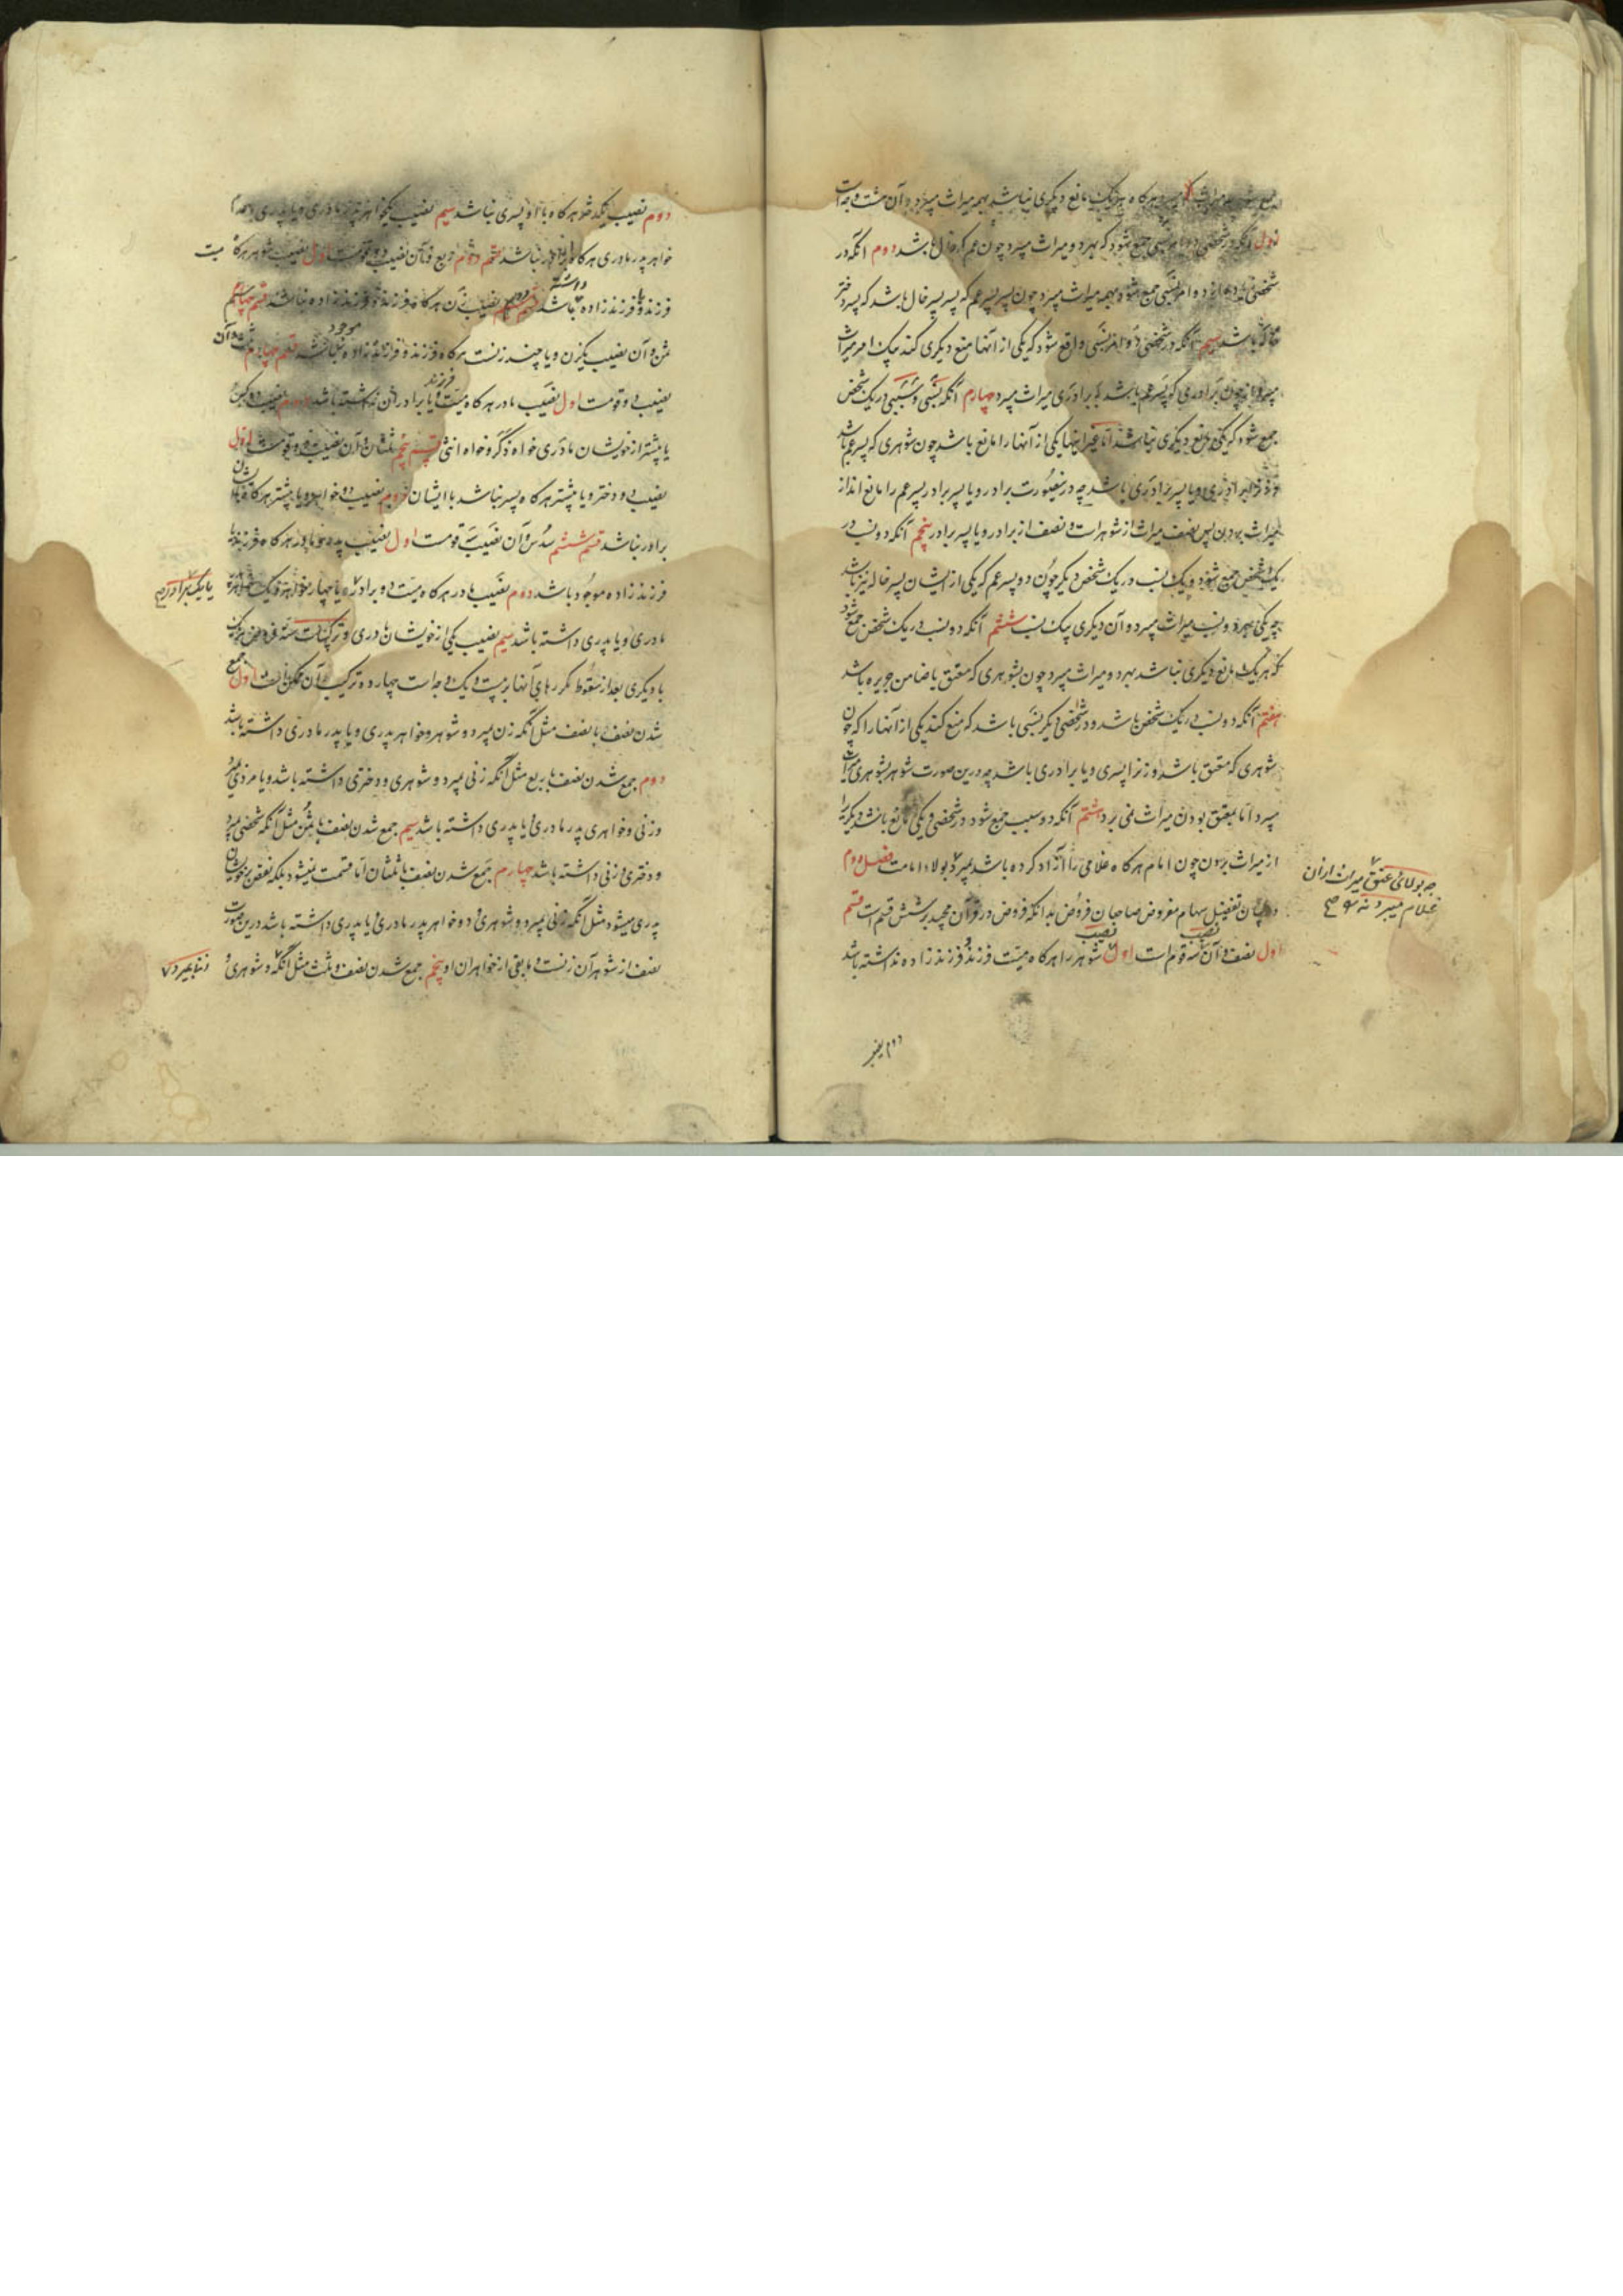 هرگاه هریک مانع دیگری نباشد بهمه میراث میبرد و آن هشت وجه است
اول آنکه در شخصی دو امر نسبی جمع شود که بهر دو میراث میبرد چون عم که خال باشد دوم آنکه در
شخصی زیاده از دو امر نسبی جمع شود و بهمه میراث میبرد چون پسر پسر عم که پسر پسر خال باشد که پسر دختر
خاله باشد سیم آنکه در شخصی دو امر نسبی واقع شود که یکی از آنها منع دیگری کند بیک امر میراث
میبرد چون برادری که پسر عم باشد به برادری میراث میبرد چهارم آنکه نسبی و سببی در یک شخص
جمع شود که یکی مانع دیگری نباشد اما غیر اینها یکی از آنها را مانع باشد چون شوهری که پسر عم باشد
و زن برادری و یا پسر برادری باشد چه درینصورت برادر و یا پسر برادر پسر عم را مانع اند از
میراث بردن پس نصف میراث از شوهر است و نصف از برادر و یا پسر برادر پنجم آنکه دو نسب در
یک شخص جمع شود و یک نسب در یک شخص دیگر چون دو پسر عم که یکی از ایشان پسر خاله نیز باشد
چه یکی بهر دو نسب میراث میبرد و آن دیگری بیک نسب ششم آنکه دو نسب در یک شخص جمع شود
که هر یک مانع دیگری نباشد بهر دو میراث میبرد چون شوهری که معتق یا ضامن جریره باشد
هفتم آنکه دو نسب در یک شخص باشد و در شخصی دیگر نسبی باشد که منع کند یکی از آنها را که چون
شوهری که معتق باشد و زن را پسری و یا برادری باشد چه درین صورت شوهر بشوهری میراث
میبرد اما بمعتق بودن میراث نمی برد هشتم آنکه دو سبب جمع شود در شخصی و یکی مانع باشد دیگری را
از میراث بردن چون امام هرگاه غلامی را آزاد کرده باشد بمیرد بولاء امامت فصل دوم
چه بولای عتق میراث از آن
غلام میبرد نه صح
در بیان تفضیل سهام مفروض صاحبان فروض بدانکه فروض در قرآن مجید بر شش قسم است قسم
اول نصف و آن نصیب سه قوم است اول نصیب شوهر را هرگاه میت فرزند و فرزند زاده نداشته باشد
دوم نصیب
دوم نصیب یکدختر هرگاه با او پسری نباشد سیم نصیب یکخواهر پدر مادری و یا پدری
خواهر پدر مادری هرگاه برادر نباشد قسم دوم ربع و آن نصیب دو قومست اول نصیب شوهر هرگاه میت
فرزند و یا فرزند زاده داشته باشد دوم نصیب زن هرگاه فرزند و فرزند زاده نباشد قسم سیم
ثمن و آن نصیب یکزن و یا چند زنست هرگاه فرزند و فرزند زاده موجود باشد قسم چهارم ثلث و آن
نصیب دو قومست اول نصیب مادر هرگاه میت فرزند و یا برادران نداشته باشد دوم نصیب دو کس
یا بیشتر از خویشان مادری خواه ذکر و خواه انثی قسم پنجم ثلثان و آن نصیب دو قومست اول
نصیب دو دختر و یا بیشتر هرگاه پسر نباشد با ایشان دوم نصیب دو خواهر و یا بیشتر هرگاه با ایشان
برادر نباشد قسم ششم سدس و آن نصیب سه قومست اول نصیب پدر و مادر هرگاه فرزند یا
فرزند زاده موجود باشد دوم نصیب مادر هرگاه میت دو برادر یا چهار خواهر و یک خواهر
یا یک برادر صح
مادری و یا پدری داشته باشد سیم نصیب یکی از خویشان مادری و ترکیبات سته فروض هر یک
با دیگری بعد از سقوط مکررهای آنها بیست و یک وجه است چهارده ترکیب آن ممکن است اول جمع
شدن نصف با نصف مثل آنکه زن بمیرد و شوهر و خواهر پدری و یا پدر مادری داشته باشد
دوم جمع شدن نصف با ربع مثل آنکه زنی بمیرد و شوهری و دختری داشته باشد و یا مردی بمیرد
و زنی و خواهری پدر مادری یا پدری داشته باشد سیم جمع شدن نصف با ثمن مثل آنکه شخصی بمیرد
و دختری و زنی داشته باشد چهارم جمع شدن نصف با ثلثان اما قسمت نمیشود بلکه نقص بر خویشان
پدری میشود مثل آنکه زنی بمیرد و شوهری و دو خواهر پدر مادری یا پدری داشته باشد درین صورت
نصف از شوهر آن زنست و مابقی از خواهران او پنجم جمع شدن نصف و ثلث مثل آنکه و شوهری و
زنی بمیرد